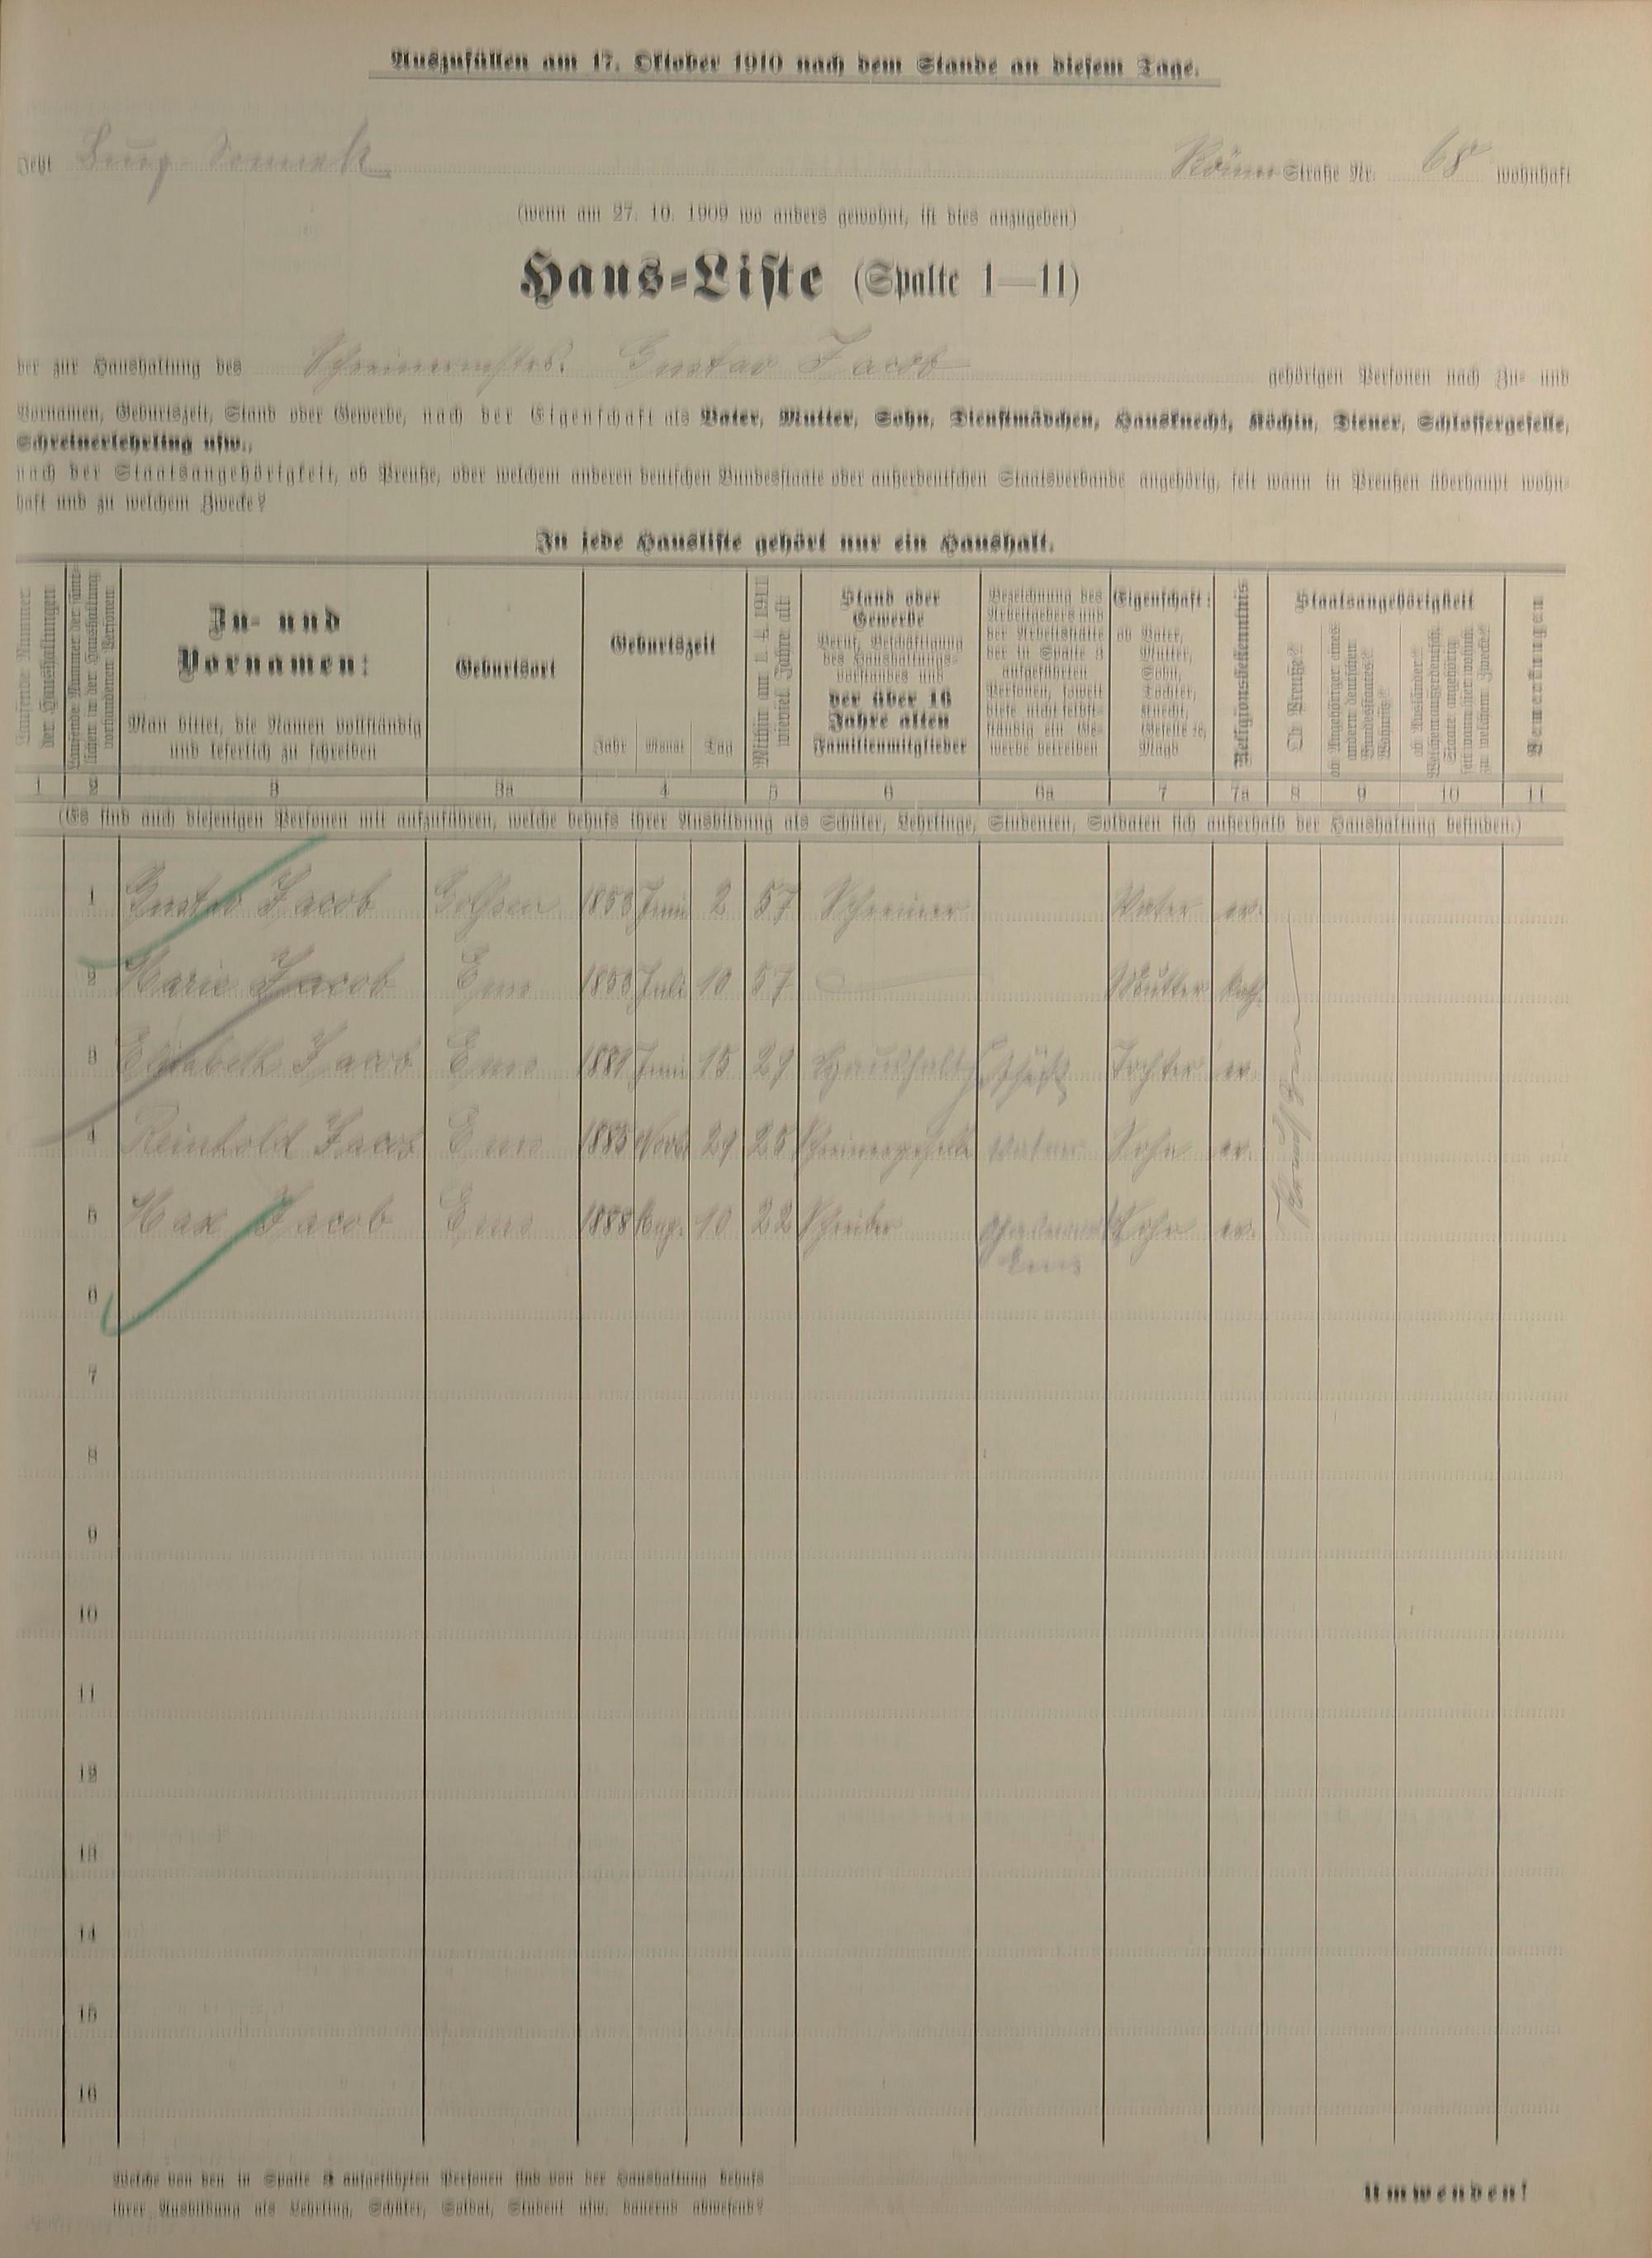 Auszufüllen am 17. Oktober 1910 nach dem Stande an diesem Tage.
Jetzt Burg Sonnek Römer Straße Nr. 68 wohnhaft
(wenn am 27. 10. 1909 wo anders gewohnt, ist dies anzugeben)
Haus-Liste (Spalte 1—11)
der zur Haushaltung des Schreinermstrs. Gustav Jacob gehörigen Personen nach Zu- und
Vornamen, Geburtszeit, Stand oder Gewerbe, nach der Eigenschaft als Vater, Mutter, Sohn, Dienstmädchen, Hausknecht, Köchin, Diener, Schlossergeselle,
Schreinerlehrling usw.,
nach der Staatsangehörigkeit, ob Preuße, oder welchem anderen deutschen Bundesstaate oder außerdeutschen Staatsverbande angehörig, seit wann in Preußen überhaupt wohn-
haft und zu welchem Zwecke?
In jede Hausliste gehört nur ein Haushalt.
Laufende Nummer der Haushaltungen
Laufende Nummer der sämt-
lichen in der Haushaltung
vorhandenen Personen
Zu- und
Vornamen:
Man bittet, die Namen vollständig
und leserlich zu schreiben
Geburtsort
Geburtszeit
Jahr Monat Tag
Mithin am 1. 4. 1911
wieviel Jahre alt
Stand oder
Gewerbe
Beruf, Beschäftigung
des Haushaltungs-
vorstandes und
der über 16
Jahre alten
Familienmitglieder
Bezeichnung des
Arbeitgebers und
der Arbeitsstätte
der in Spalte 3
aufgeführten
Personen, soweit
diese nicht selbst-
ständig ein Ge-
werbe betreiben
Eigenschaft:
ob Vater,
Mutter,
Sohn,
Tochter,
Knecht,
Geselle ec.
Magd
Religionsbekenntnis
Staatsangehörigkeit
Ob Preuße?
ob Angehöriger eines
andern deutschen
Bundesstaates?
Wohnsitz?
ob Ausländer?
Welchem außerdeutsch.
Staate angehörig
seit wann hier wohnh.
zu welchem Zwecke?
Bemerkungen
1 2 3 3a 4 5 6 6a 7 7a 8 9 10 11
(Es sind auch diejenigen Personen mit aufzuführen, welche behufs ihrer Ausbildung als Schüler, Lehrlinge, Studenten, Soldaten sich außerhalb der Haushaltung befinden.)
1 Gustav Jacob Golssen 1853 Juni 2 57 Schreiner Vater ev.
2 Marie Jacob Ems 1853 Juli 10 57 Mutter kath.
3 Elisabeth Jacob Ems 1881 Juni 15 29 Tochter ev.
4 Reinhold Jacob Ems 1885 Novb. 29 25 Schreinergeselle Vater Sohn ev.
5 Max Jacob Ems 1888 Aug. 10 22 Schreiber Ems Sohn ev.
6
7
8
9
10
11
12
13
14
15
16
Welche von den in Spalte 3 aufgeführten Personen sind von der Haushaltung behufs
ihrer Ausbildung als Lehrling, Schüler, Soldat, Student usw. dauernd abwesend?
Umwenden!